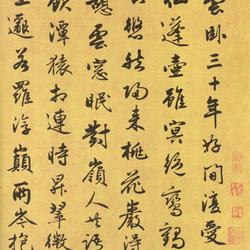 雲卧三十年好閒復愛
仙蓬壺雖冥絕鸞鶴
心悠然歸來桃花巖得
憩雲窓眠對嶺人共語
飲潭猿相連時昇翠微
上邈若羅浮巔兩岑抱